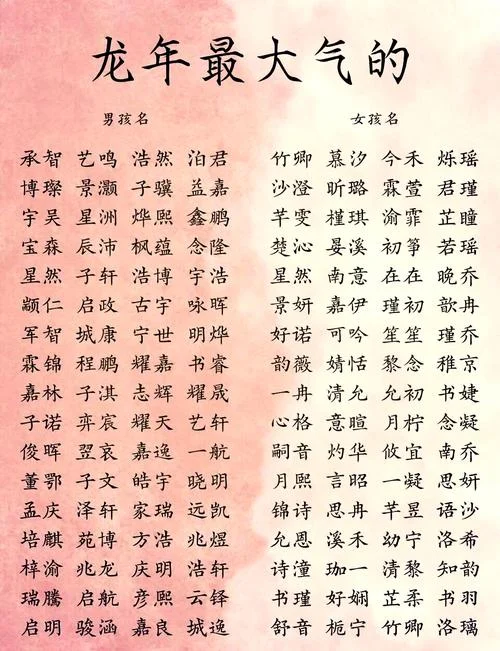 龙年最大气的
男孩名 女孩名
承智 艺鸣 浩然 泊君 竹卿 慕汐 今禾 烁瑶
博璨 景灏 子骥 益嘉 沙澄 昕璐 霖萱 君瑾
宇吴 星洲 烨熙 鑫鹏 芊雯 槿琪 渝霏 芷瞳
宝森 辰沛 枫蕴 念隆 楚沁 晏溪 初筝 若瑶
星然 子轩 浩博 宇浩 星然 南意 在在 晚乔
颛仁 启政 古宇 咏晖 景妍 嘉伊 瑾初 歆冉
军智 城康 宁世 明烨 好诺 可吟 笙笙 瑾乔
霖锦 程鹏 耀嘉 书睿 韵薇 婧恬 黎念 稚京
嘉林 子淇 志辉 耀晟 一冉 清允 允初 书婕
子诺 弈宸 耀天 艺轩 心格 意暄 月柠 念凝
俊晖 翌哀 嘉逸 一航 嗣音 灼华 攸宜 南乔
董鄂 子文 皓宇 晓明 月熙 言昭 一凝 思妍
孟庆 泽轩 家瑞 远凯 锦诗 思冉 芊昱 语沙
培麒 苑博 方浩 兆煜 允恩 溪禾 幼宁 洛希
梓渝 兆龙 庆明 浩轩 诗潼 珈一 清黎 知韵
瑞腾 启航 彦熙 云铎 书瑾 好娴 芷柔 书羽
启明 骏涵 嘉良 城逸 舒音 栀宁 竹卿 洛璃